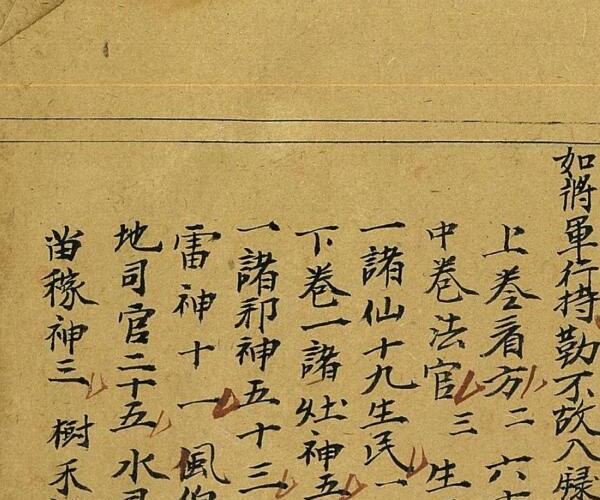 如將軍行持勤不故入
上卷看方二六
中卷法官三生
一諸仙十九生民一
下卷一諸灶神五
一諸邪神五十三
雷神十一風伯
地司官二十五水
苗稼神三樹禾